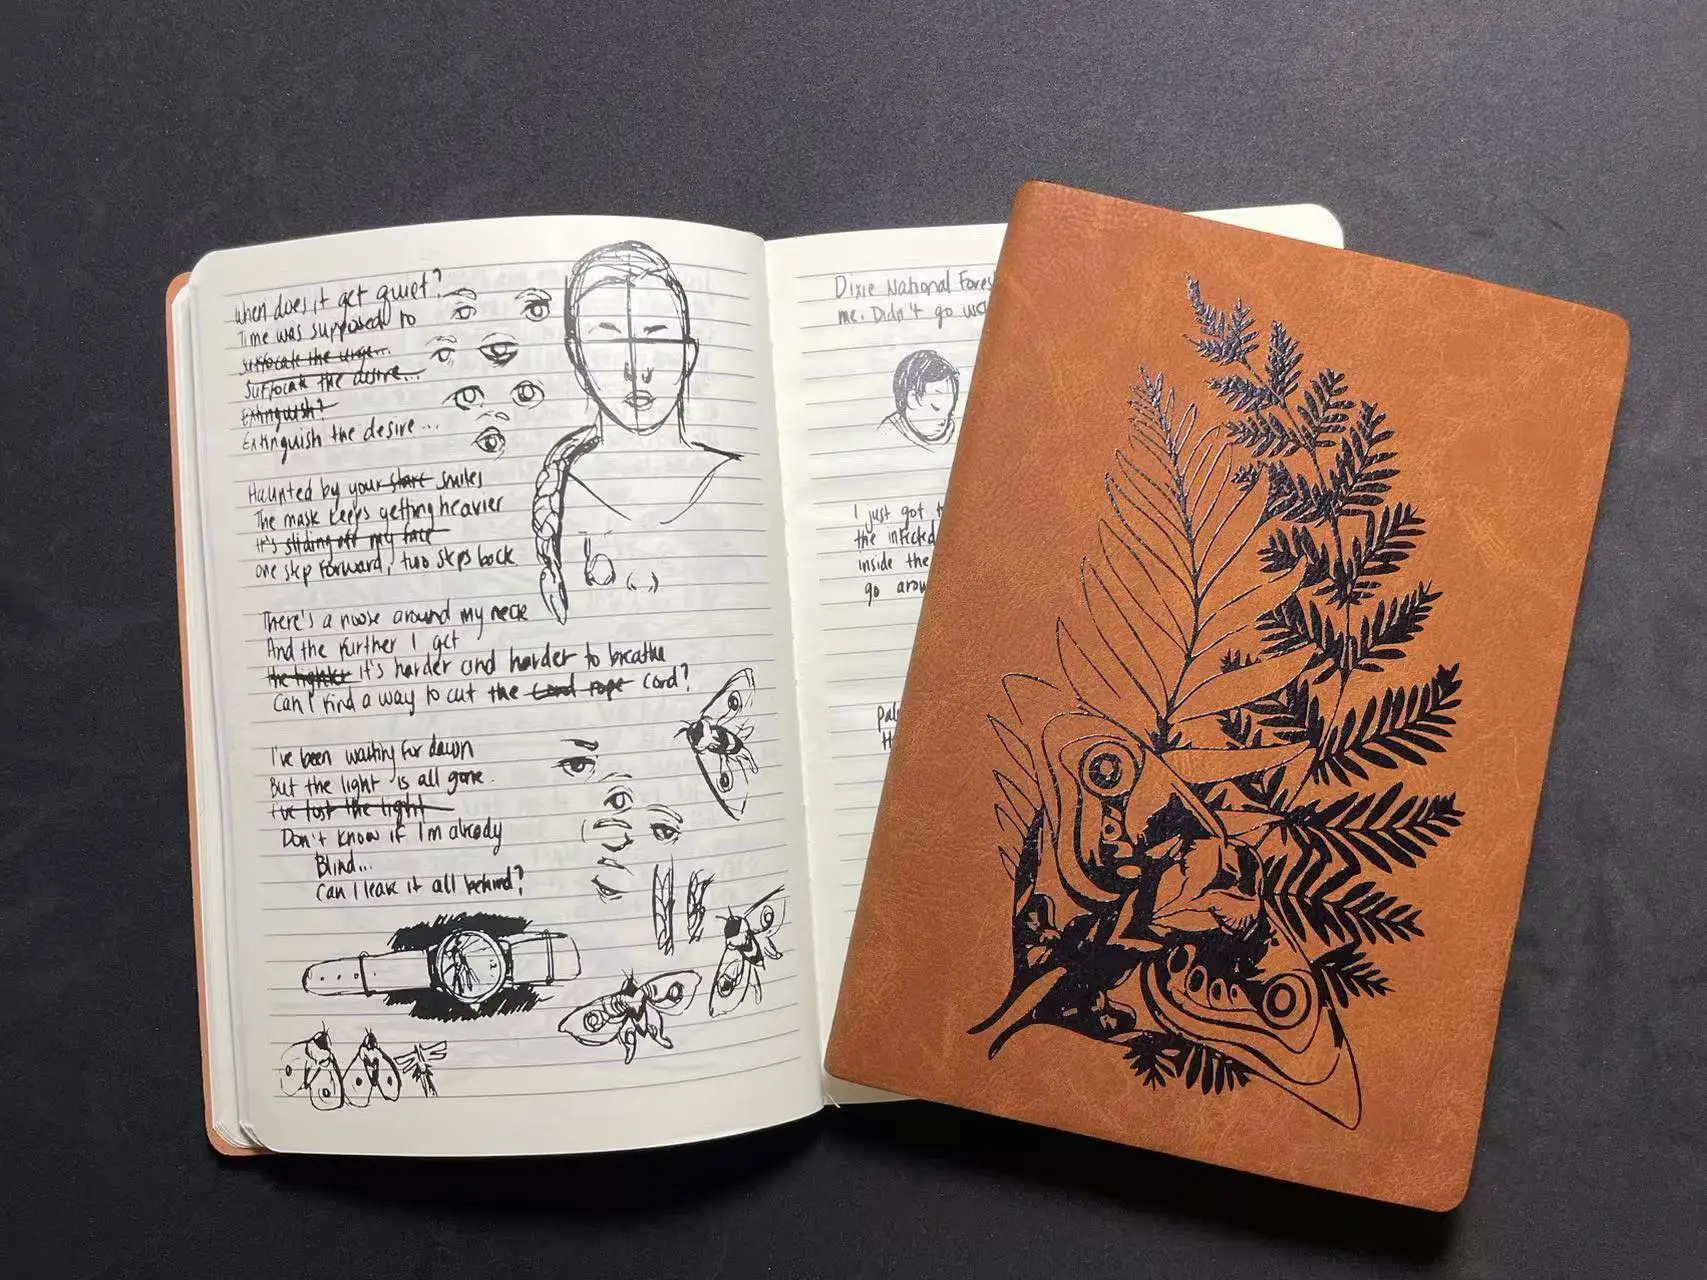 When does it get quiet?
Time was supposed to
suffocate the urge...
suffocate the desire...
Extinguish?
Extinguish the desire...
Haunted by your stare smiles
The mask keeps getting heavier
it's sliding off my face
one step forward, two steps back.
There's a noose around my neck
And the further I get
the tighter it's harder and harder to breathe
Can I find a way to cut the cord rope cord?
I've been waiting for dawn
But the light is all gone.
I've lost the light
Don't know if I'm already
Blind...
Can I leave it all behind?
Dixie National Fores
me. Didn't go
I just got
the infected
inside the
go